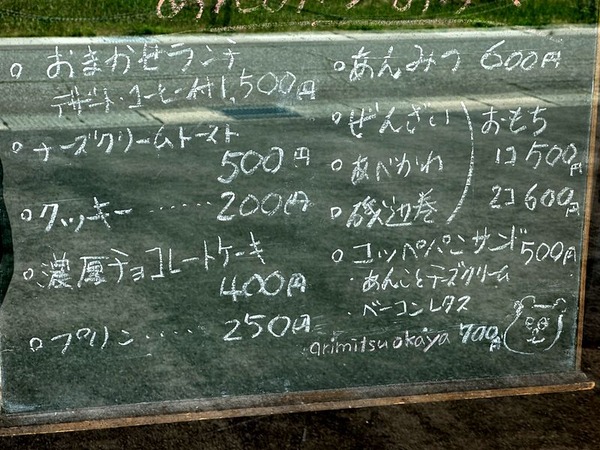 ○ おまかせランチ
デザート・コーヒー付1,500円
○ チーズクリームトースト
500円
○ クッキー……200円
○ 濃厚チョコレートケーキ
400円
○ プリン……250円
○ あんみつ 600円
○ ぜんざい
○ あべかわ
○ 磯辺巻
おもち
1コ 500円
2コ 600円
○ コッペパンサンド500円
・あんことチーズクリーム
・ベーコンレタス
700円
arimitsuokaya